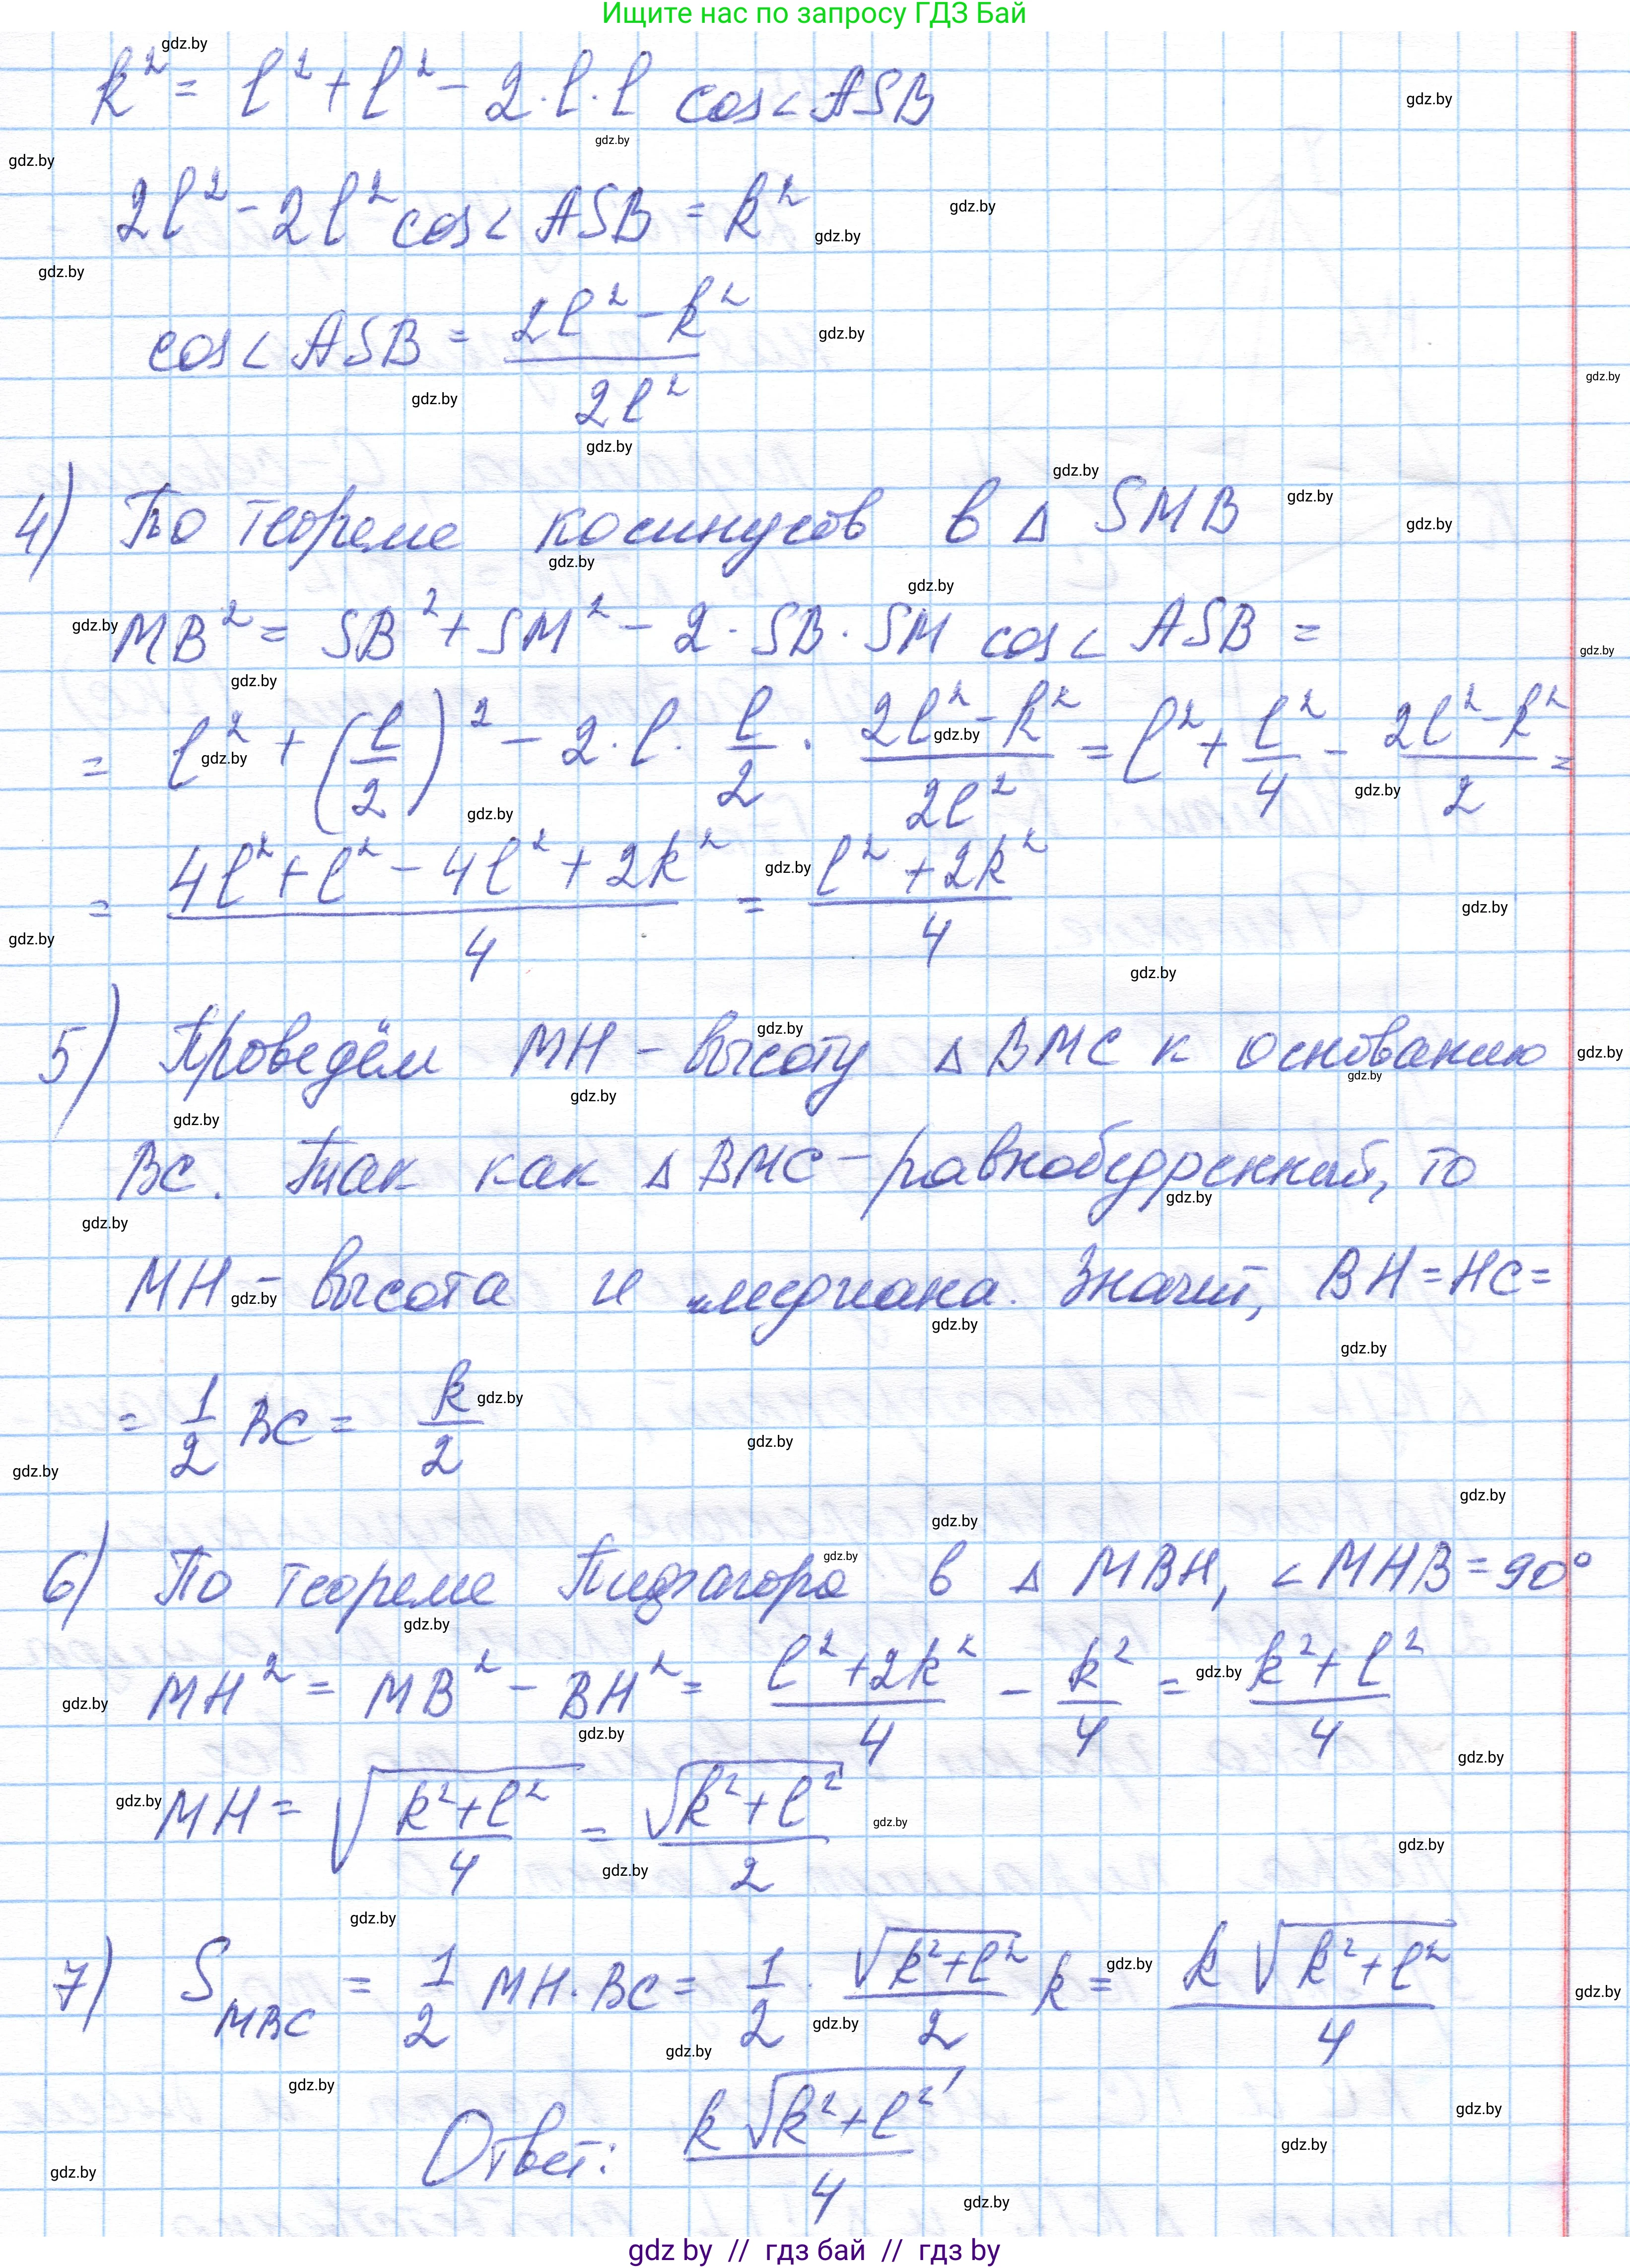 Ищите нас по запросу ГДЗ Бай
k² = l² + l² - 2·l·l cos∠ASB
2l² - 2l² cos∠ASB = k²
cos∠ASB = (2l² - k²)/(2l²)
4) По теореме косинусов в Δ SMB
MB² = SB² + SM² - 2·SB·SM cos∠ASB =
= l² + (l/2)² - 2·l·l/2·(2l² - k²)/(2l²) = l² + l²/4 - (2l² - k²)/2 =
= (4l² + l² - 4l² + 2k²)/4 = (l² + 2k²)/4
5) Проведём MH - высоту Δ BMC к основанию
BC. Так как Δ BMC - равнобедренный, то
MH - высота и медиана. Значит, BH = HC =
= 1/2 BC = k/2
6) По теореме Пифагора в Δ MBH, ∠MHB = 90°
MH² = MB² - BH² = (l² + 2k²)/4 - k²/4 = (k² + l²)/4
MH = √((k² + l²)/4) = √(k² + l²)/2
7) S_MBC = 1/2 MH·BC = 1/2 · √(k² + l²)/2 k = k√(k² + l²)/4
Ответ: k√(k² + l²)/4
gdz by // гдз бай // gdz by